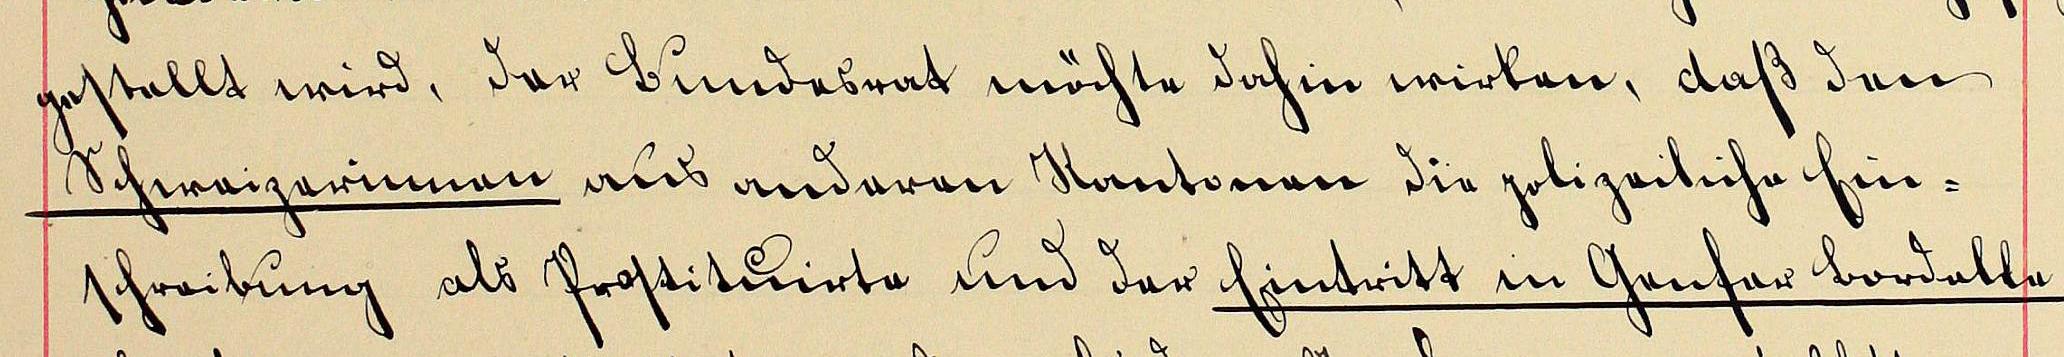 gestellt wird, der Bundesrat möchte dahin wirken, daß den
Schweizerinnen aus anderen Kantonen die polizeiliche Ein=
schreibung als Prostituirte und der Eintritt in Genfer Bordelle